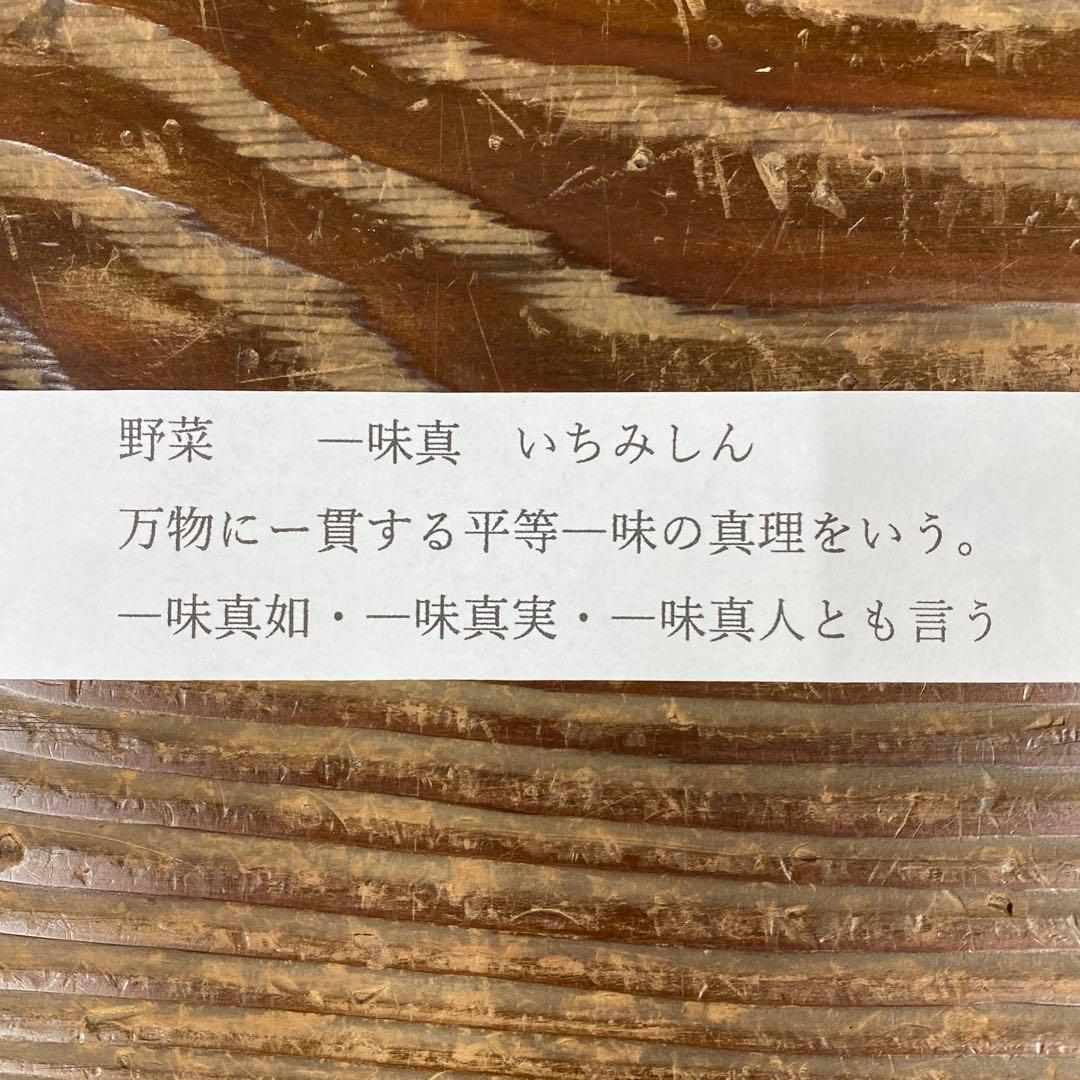 野菜　　一味真　いちみしん
万物に一貫する平等一味の真理をいう。
一味真如・一味真実・一味真人とも言う